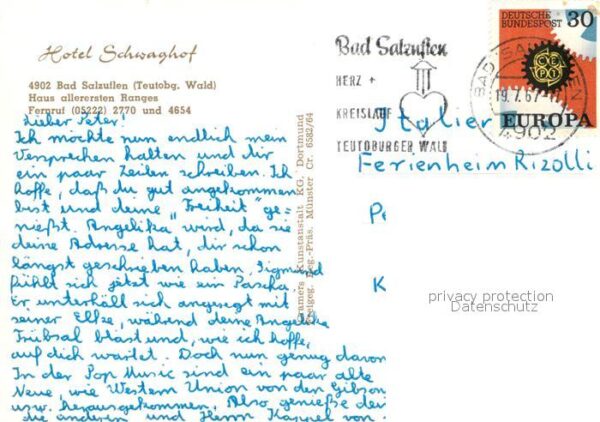 Hotel Schwaghof
4902 Bad Salzuflen (Teutobg. Wald)
Haus allerersten Ranges
Fernruf (05222) 2770 und 4654
Lieber Peter!
Ich möchte nun endlich mein
Versprechen halten und dir
ein paar Zeilen schreiben. Ich
hoffe, daß du gut angekommen
bist und deine "Freiheit" ge-
nießt. Angelika wird, da sie
deine Adresse hat, dir schon
längst geschrieben haben. Sigmund
fühlt sich jetzt wie ein Pascha.
Er unterhält sich angeregt mit
seiner Elfse, während deine Angelika
Trübsal bläst und, wie ich hoffe,
auf dich wartet. Doch nun genug davon
In der Pop Music sind ein paar alte
Neue, wie Western Union von den Gibson
usw. herausgekommen. Also genieße den
die anderen und Herrn Kappel von
Cramers Kunstanstalt KG. Dortmund
Freigeg. Reg.-Präs. Münster Cr. 6582/64
Bad Salzuflen
HERZ +
KREISLAUF
TEUTOBURGER WALD
DEUTSCHE
BUNDESPOST
30
CEPT
EUROPA
BAD SALZUFLEN
19.7.67
4902
Italien
Ferienheim Rizolli
Pe
K
privacy protection
Datenschutz